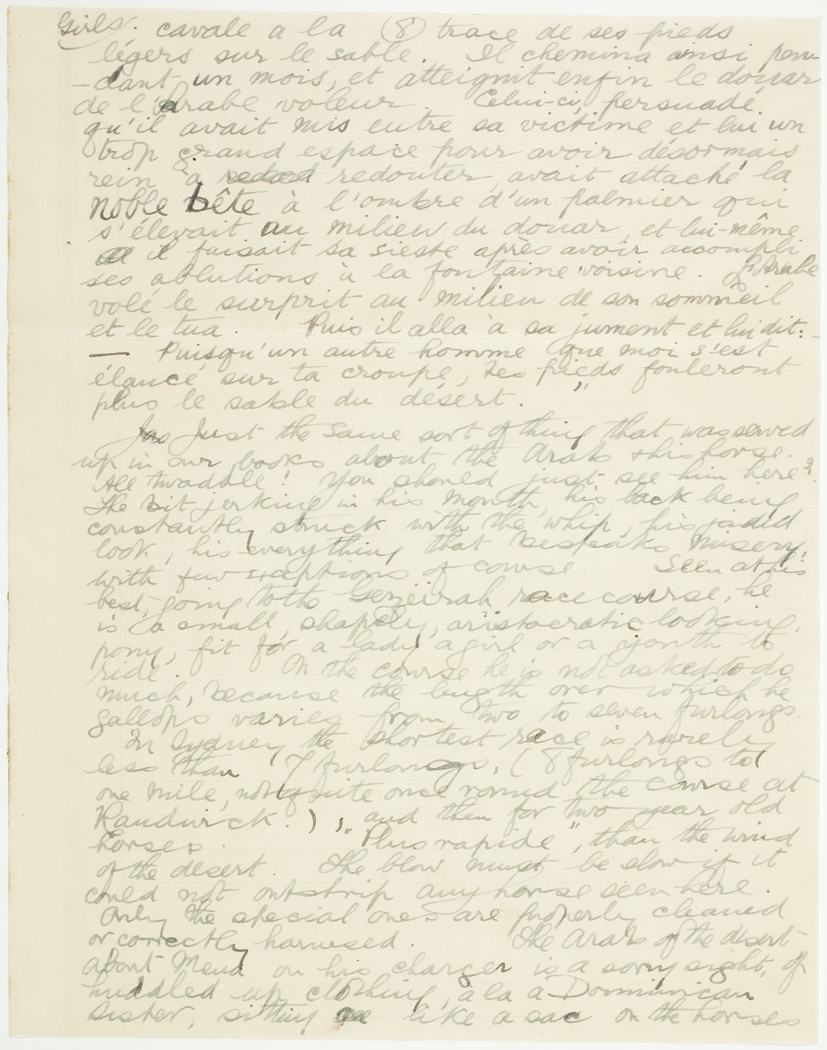 Girls; cavale a la (8) trace de ses pieds
légers sur le sable. Il chemina ainsi pen
-dant un mois, et atteignit enfin le douar
de l'Arabe voleur. Celui-ci, persuadé
qu'il avait mis entre sa victime et lui un
trop grand espace pour avoir désormais
rein à redouter, avait attaché la
noble bête à l'ombre d'un palmier qui
s'élevait au milieu du douar, et lui-même
il faisait sa sieste après avoir accompli
ses ablutions à la fontaine voisine. L'Arabe
volé le surprit au milieu de son sommeil
et le tua. Puis il alla à sa jument et lui dit:-
— Puisqu'un autre homme que moi s'est
élancé sur ta croupe, tes pieds fouleront
plus le sable du désert."
Just the same sort of thing that was served
up in our books about the Arab & his horse.
All twaddle! You should just see him here?
The bit jerking in his mouth, his back being
constantly struck with the whip, his jaded
look, his everything that bespeaks misery,
with few exceptions of course. Seen at his
best, going to the Gezeirah race course, he
is a small, shapely, aristocratic looking,
pony, fit for a lady, a girl or a youth to
ride. On the course he is not asked to do
much, because the length over which he
gallops varies from two to seven furlongs.
In Sydney the shortest race is rarely
less than 7 furlongs, (8 furlongs to
one mile, not quite once round the course at
Randwick.), and then for two year old
horses. "Plus rapide", than the wind
of the desert. The blow must be slow if it
could not outstrip any horse seen here.
Only the special ones are properly cleaned
or correctly harnesed. The Arab of the desert
about Mena on his charger is a sorry sight, of
huddled up clothing, a la a Dominican
Sister, sitting like a sac on the horses